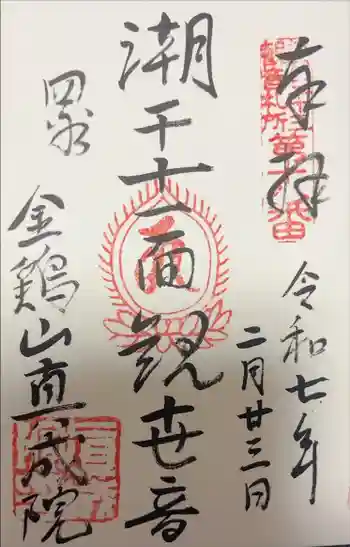 奉拝
令和七年
二月廿三日
潮干十一面観世音
金鶏山真成院